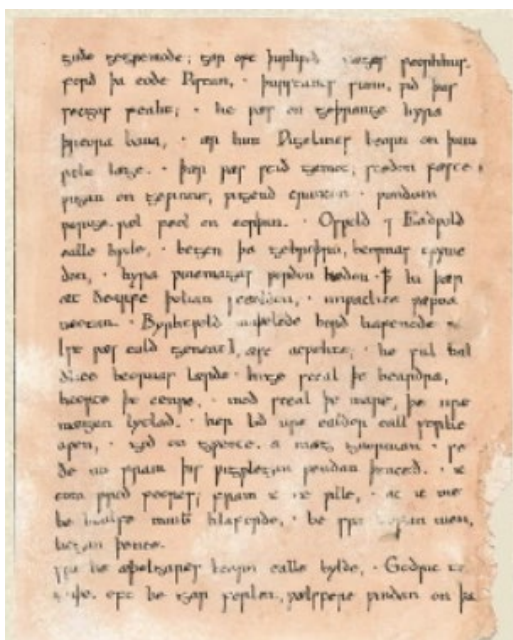 gude gegremode; gar oft þurhwod fæges feorhhus.
forð þa eode Wistan, · þurstanes sunu, wið þas
secgas feaht; · he wæs on geþrange hyra
þreora bana, · ær him Wigelines bearn on þam
wæle læge. · þær wæs stið gemot; stodon fæste ·
wigan on gewinne, wigend cruncon · wundum
werige. wæl feol on eorþan. · Oswold ⁊ Eadwold
ealle hwile, · begen þa gebroþru, beornas tryme
don, · hyra winemagas wordon bædon · ꝥ hi þær
æt ðearfe þolian sceoldon, · unwaclice wæpna
neotan. · Byrhtwold maþelode bord hafenode ·
[se wæs eald geneat], æsc acwehte; · he ful bal
dlice beornas lærde · hige sceal þe heardra,
heorte þe cenre, · mod sceal þe mare, þe ure
mægen lytlað. · her lið ure ealdor eall forhe
awen, · god on greote. a mæg gnornian · se
ðe nu fram þis wigplegan wendan þenceð. · ic
eom frod feores; fram ic ne wille, · ac ic me
be healfe minum hlaforde, · be swa leofan men,
licgan þence.
swa hi æþelgares bearn ealle bylde, · Godric to
guþe. oft he gar forlet, wælspere windan on þa